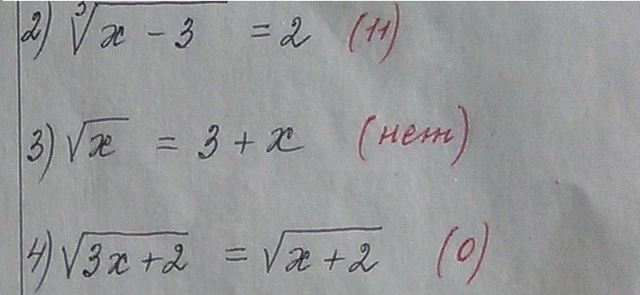 2) ∛(x - 3) = 2 (11)
3) √x = 3 + x (нет)
4) √(3x+2) = √(x+2) (0)